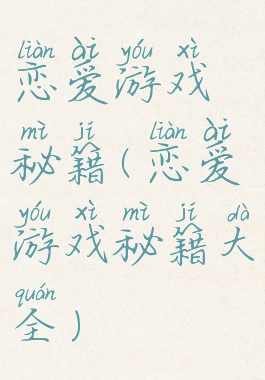 liàn ài yóu xì
恋爱游戏
mì jí liàn ài
秘籍(恋爱
yóu xì mì jí dà
游戏秘籍大
quán
全)